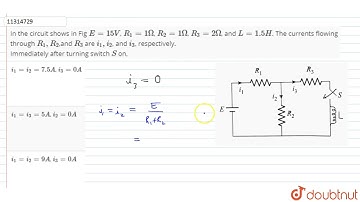 11314729
In the circuit shows in Fig E = 15V, R₁ = 1Ω, R₂ = 1Ω, R₃ = 2Ω, and L = 1.5H. The currents flowing
through R₁, R₂, and R₃ are i₁, i₂, and i₃, respectively.
Immediately after turning switch S on,
i₁ = i₂ = 7.5A, i₃ = 0A
i₃ = 0
i₁ = i₂ = 5A, i₃ = 0A
i₁ = i₂ = E / R₁+R₂
=
i₁ = i₂ = 9A, i₃ = 0A
R₁ R₃
i₁ i₂ i₃ S
E R₂ L
doubtnut